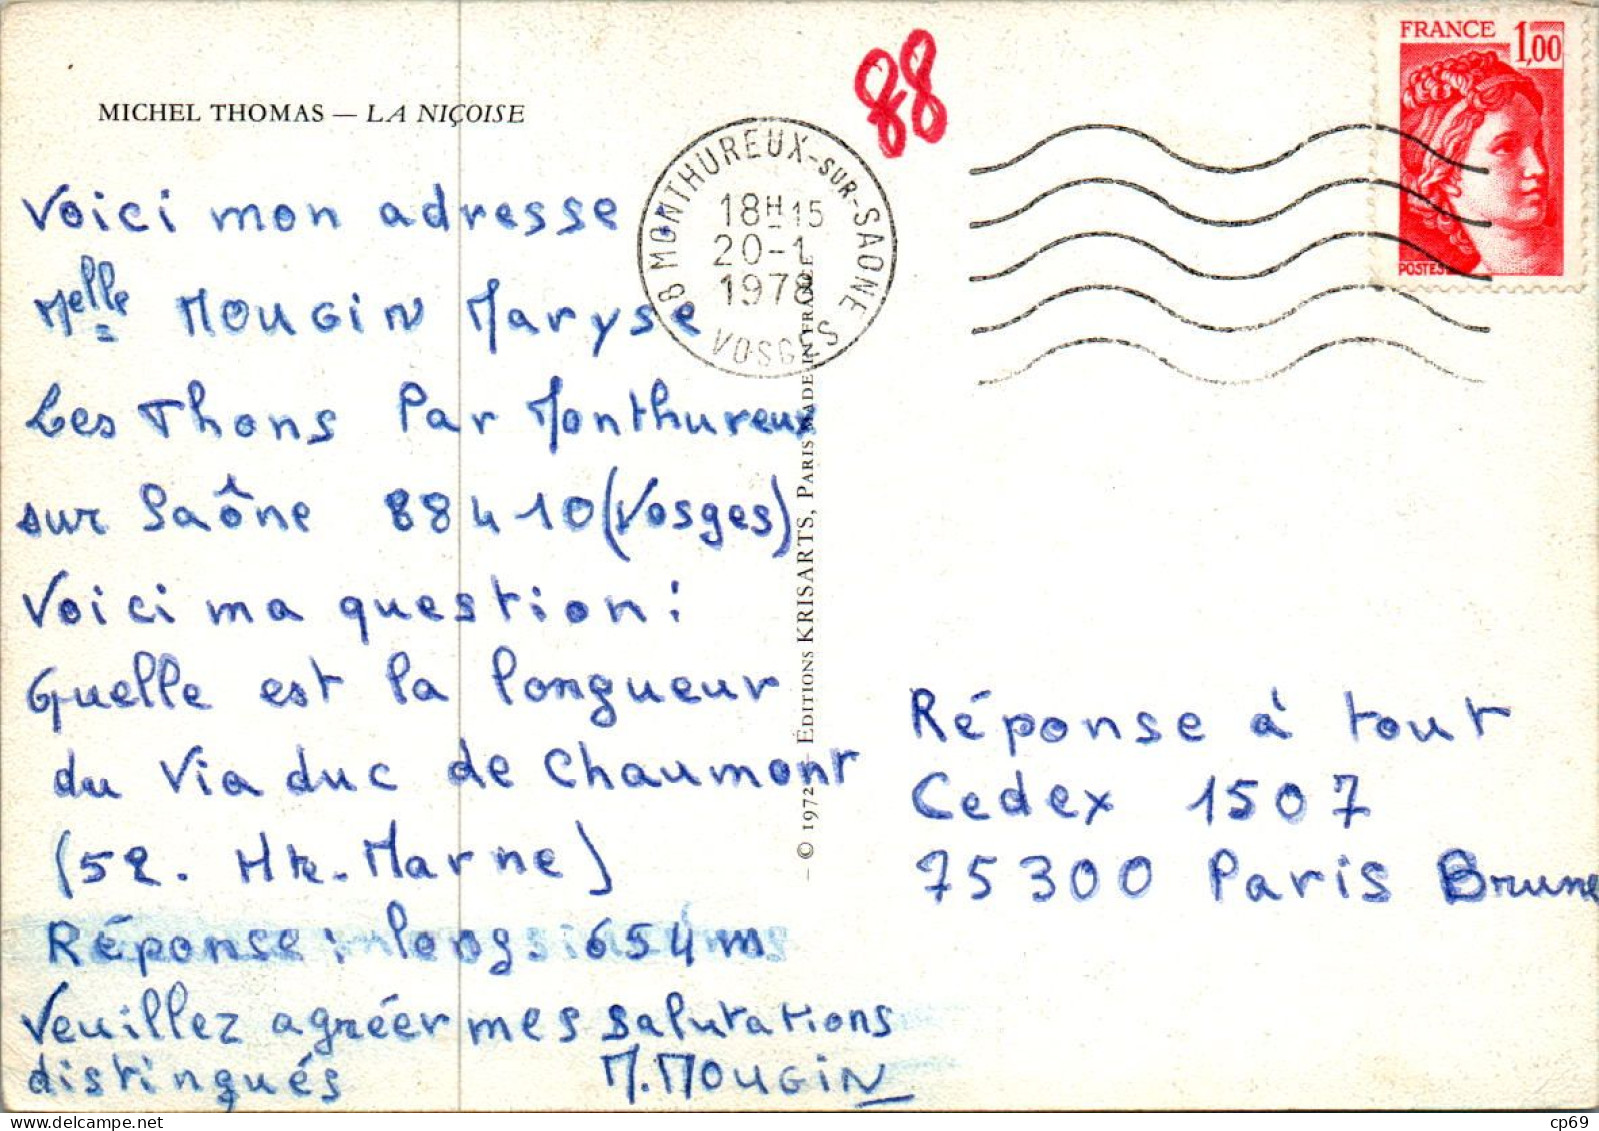 MICHEL THOMAS — LA NIÇOISE
Voici mon adresse
Melle MOUGIN Maryse
Les Thons Par Monthureux
sur Saône 88410 (Vosges)
Voici ma question :
Quelle est la longueur
du Viaduc de Chaumont
(52. Hte-Marne)
Réponse : longs 654m
Veuillez agréer mes salutations
distingués M. MOUGIN
© 1972 - ÉDITIONS KRISARTS, PARIS MADE IN FRANCE
88
88 MONTHUREUX-SUR-SAONE
18H15
20-1
1978
VOSGES
FRANCE 1,00
POSTES
Réponse à tout
Cedex 1507
75300 Paris Brune
cp69